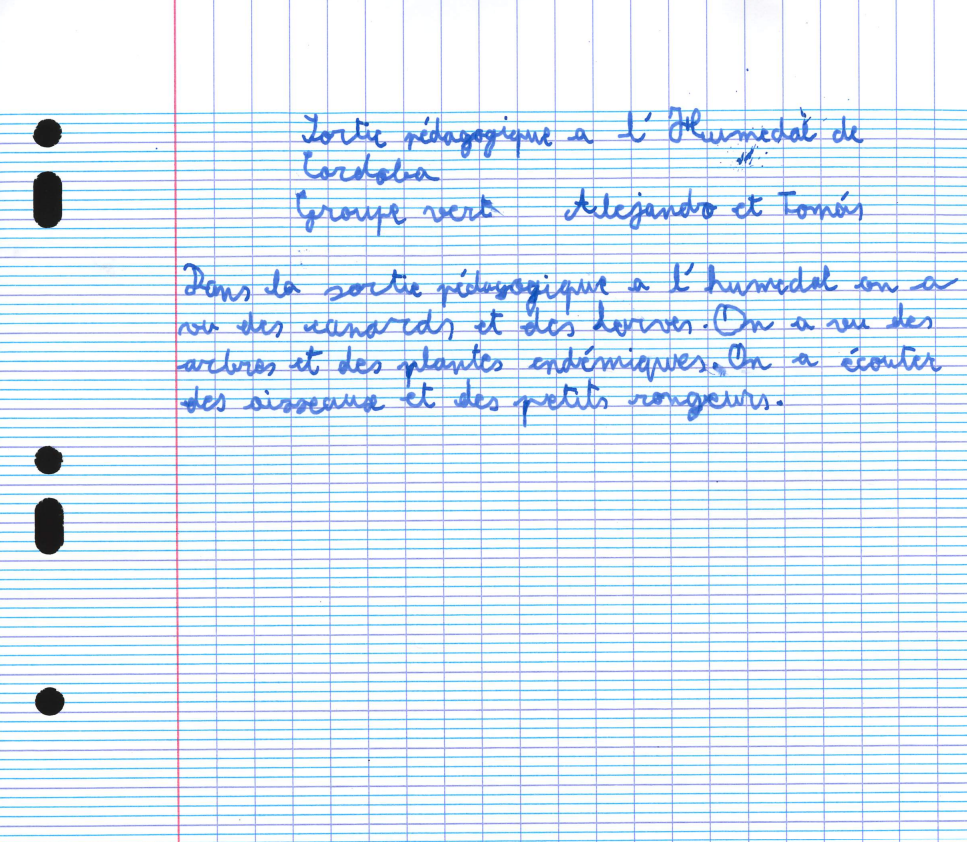 Sortie pédagogique a l'Humedal de
Cordoba
Groupe vert Alejandro et Tomás
Dans la sortie pédagogique a l'humedal on a
vu des canards et des
. On a vu des
arbres et des plantes endémiques. On a écouter
des oisseaux et des petits rongeurs.